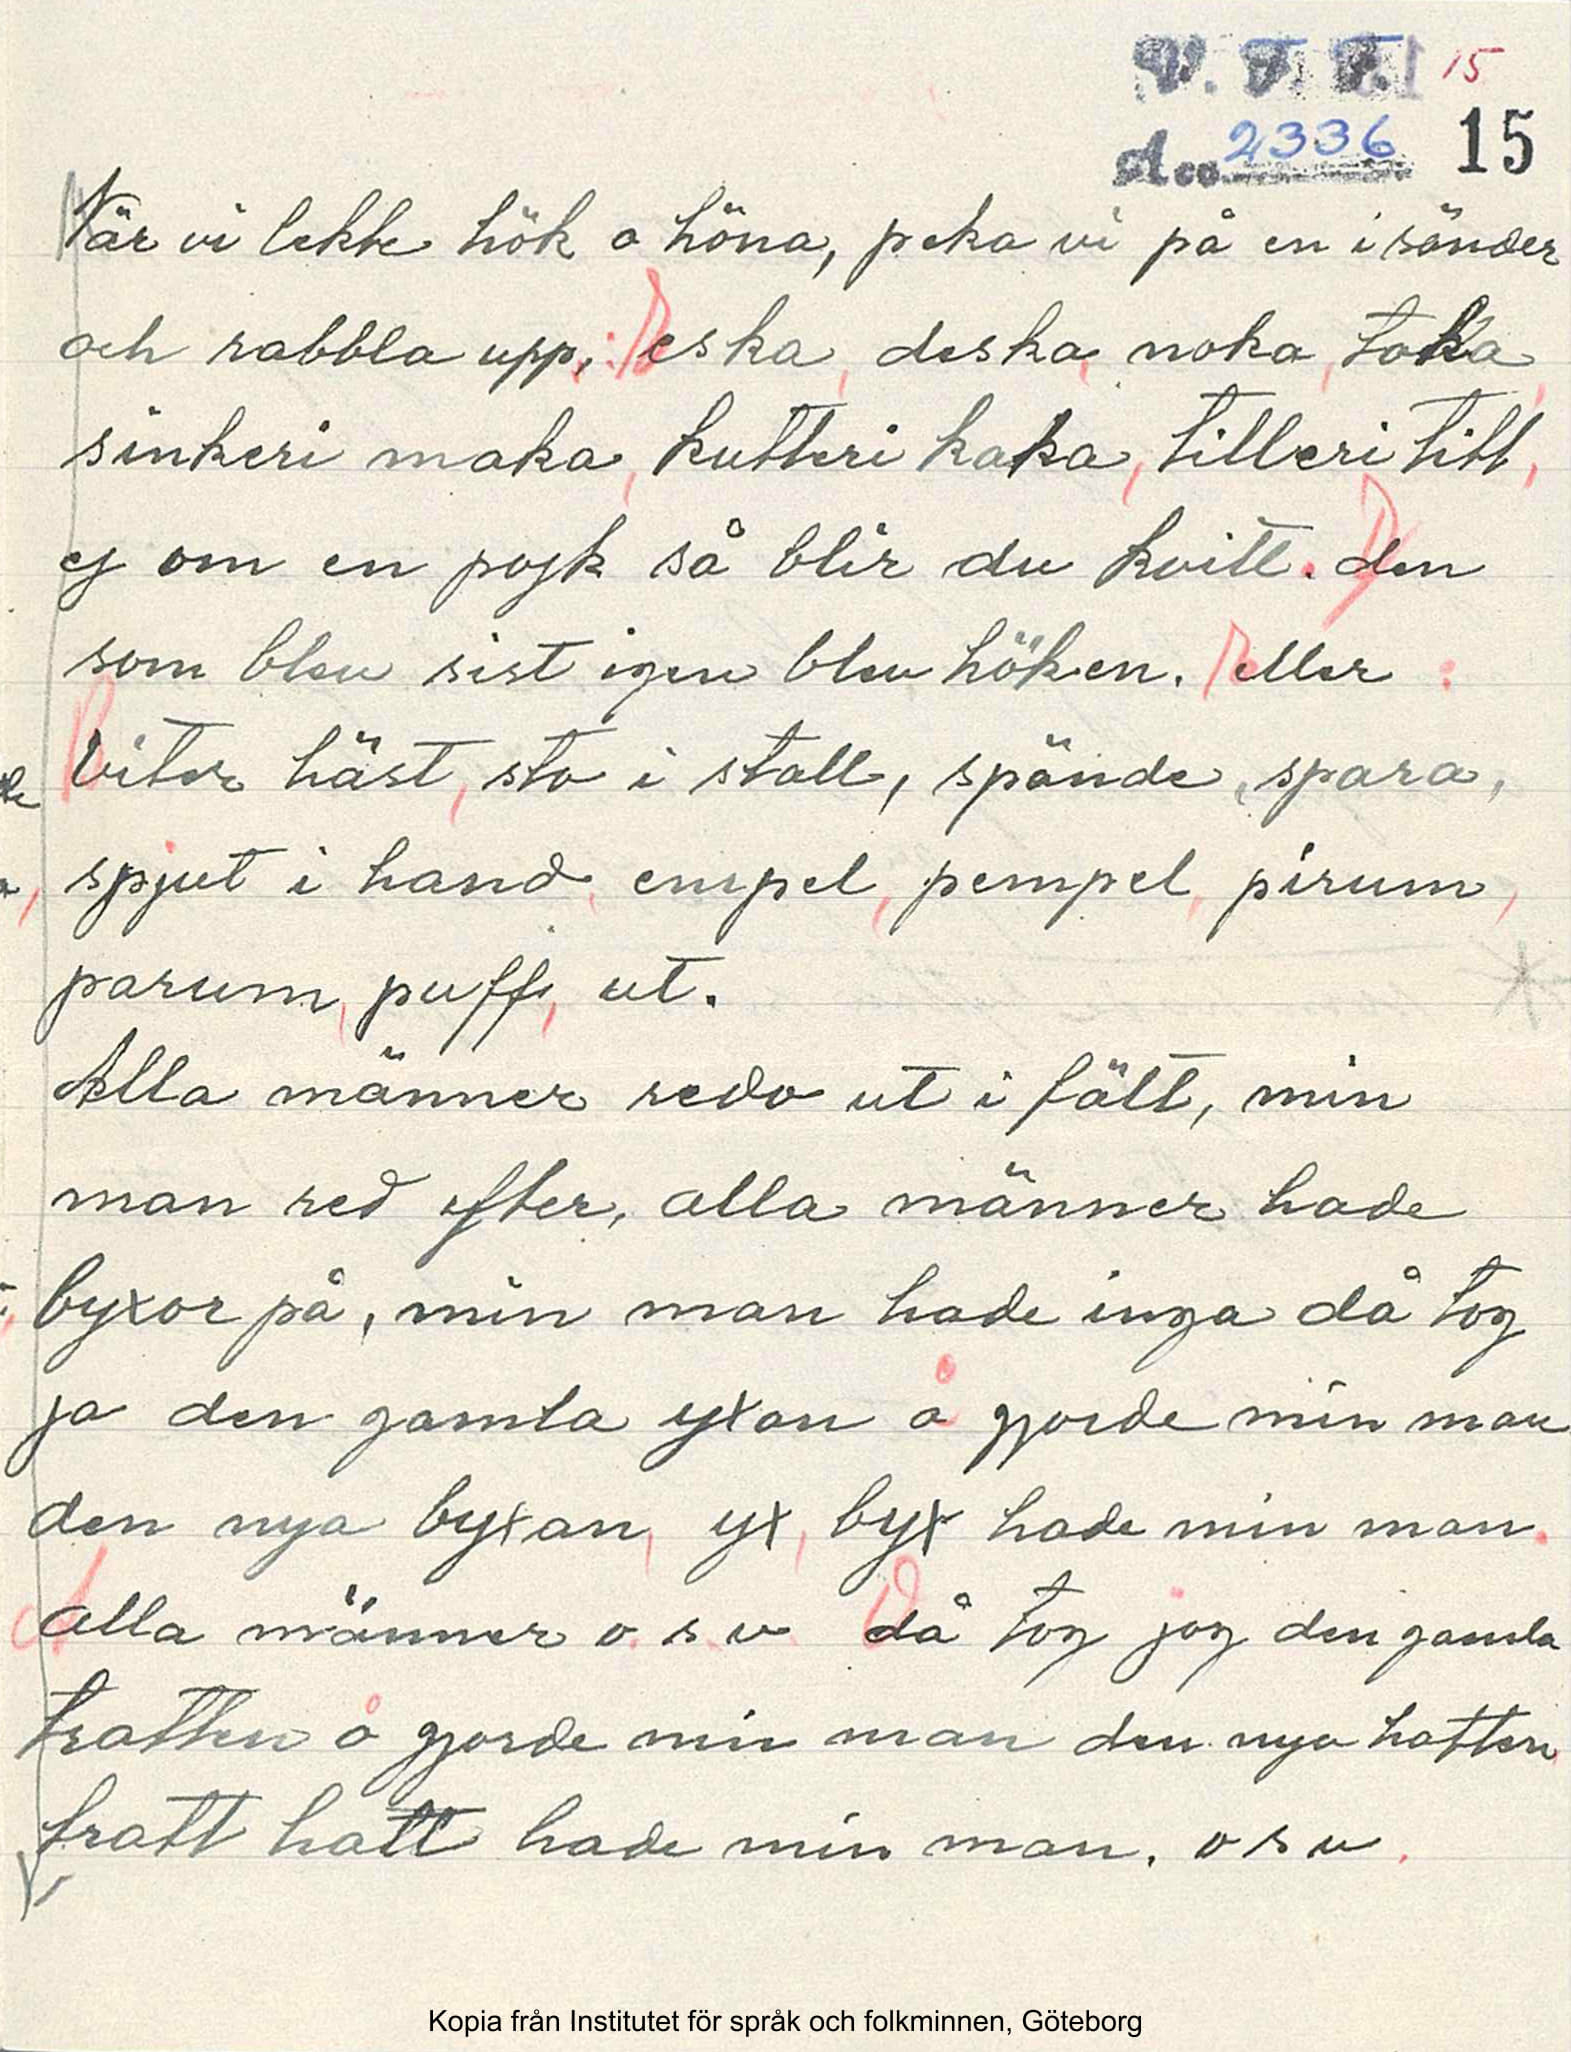 V. F. F. 15
Acc. 2336 15
När vi lekte hök o höna, peka vi på en i sänder
och rabbla upp: Eska, deska, noka, toka,
sinkeri maka, kutteri kaka, tilleri titt,
ej om en pojk så blir du kvitt. Den
som blev sist igen blev höken. eller:
Viter häst, sto i stall, spände, spara,
spjut i hand, empel, pempel, pirum,
parum, puff, ut.
Alla männer redo ut i fält, min
man red efter, alla männer hade
byxor på, min man hade inga då tog
ja den gamla yxan å gjorde min man
den nya byxan, yx, byx hade min man.
Alla männer o. s. v. Då tog jag den gamla
tratten å gjorde min man den nya hatten,
tratt hatt hade min man. o s v.
Kopia från Institutet för språk och folkminnen, Göteborg